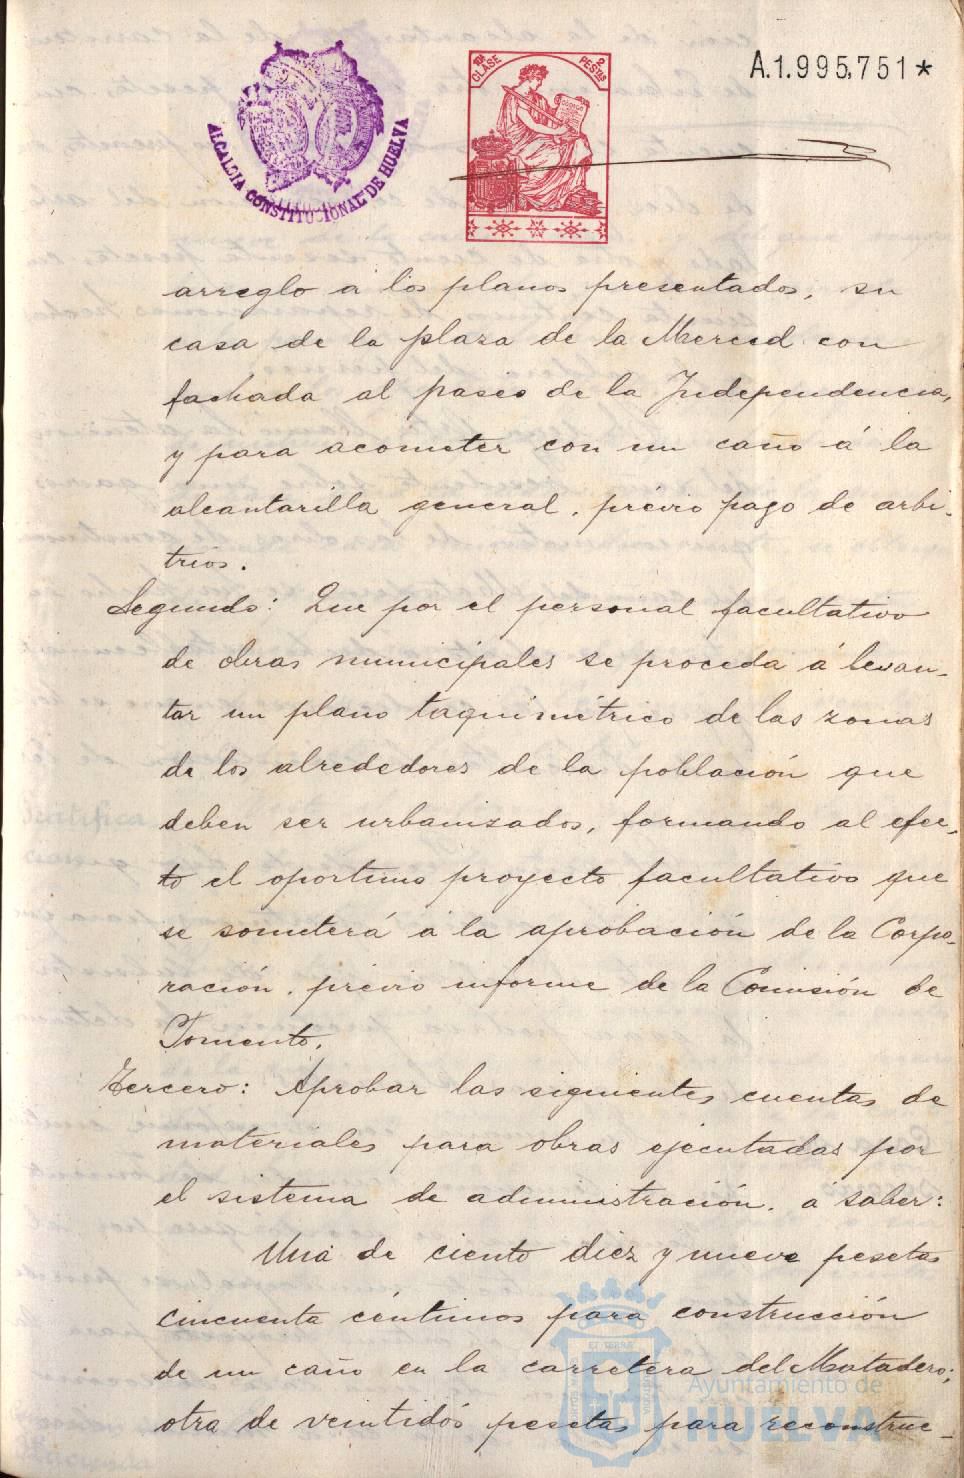 ALCALDIA CONSTITUCIONAL DE HUELVA
10A CLASE 2 PESTAS
A.1.995,751*
arreglo a los planos presentados, su
casa de la plaza de la Merced con
fachada al paseo de la Independencia,
y para acometer con un caño á la
alcantarilla general, prévio pago de arbi-
trios.
Segundo: Que por el personal facultativo
de obras municipales se proceda á levan-
tar un plano taquimétrico de las zonas
de los alrededores de la población que
deben ser urbanizados, formando al efec-
to el oportuno proyecto facultativo que
se someterá á la aprobación de la Corpo-
ración, prévio informe de la Comisión de
Fomento.
Tercero: Aprobar las siguientes cuentas de
materiales para obras ejecutadas por
el sistema de administración, á saber:
Una de ciento diez y nueve pesetas
cincuenta céntimos para construcción
de un caño en la carretera del Matadero;
otra de veintidós pesetas para reconstruc-
Ayuntamiento de
HUELVA